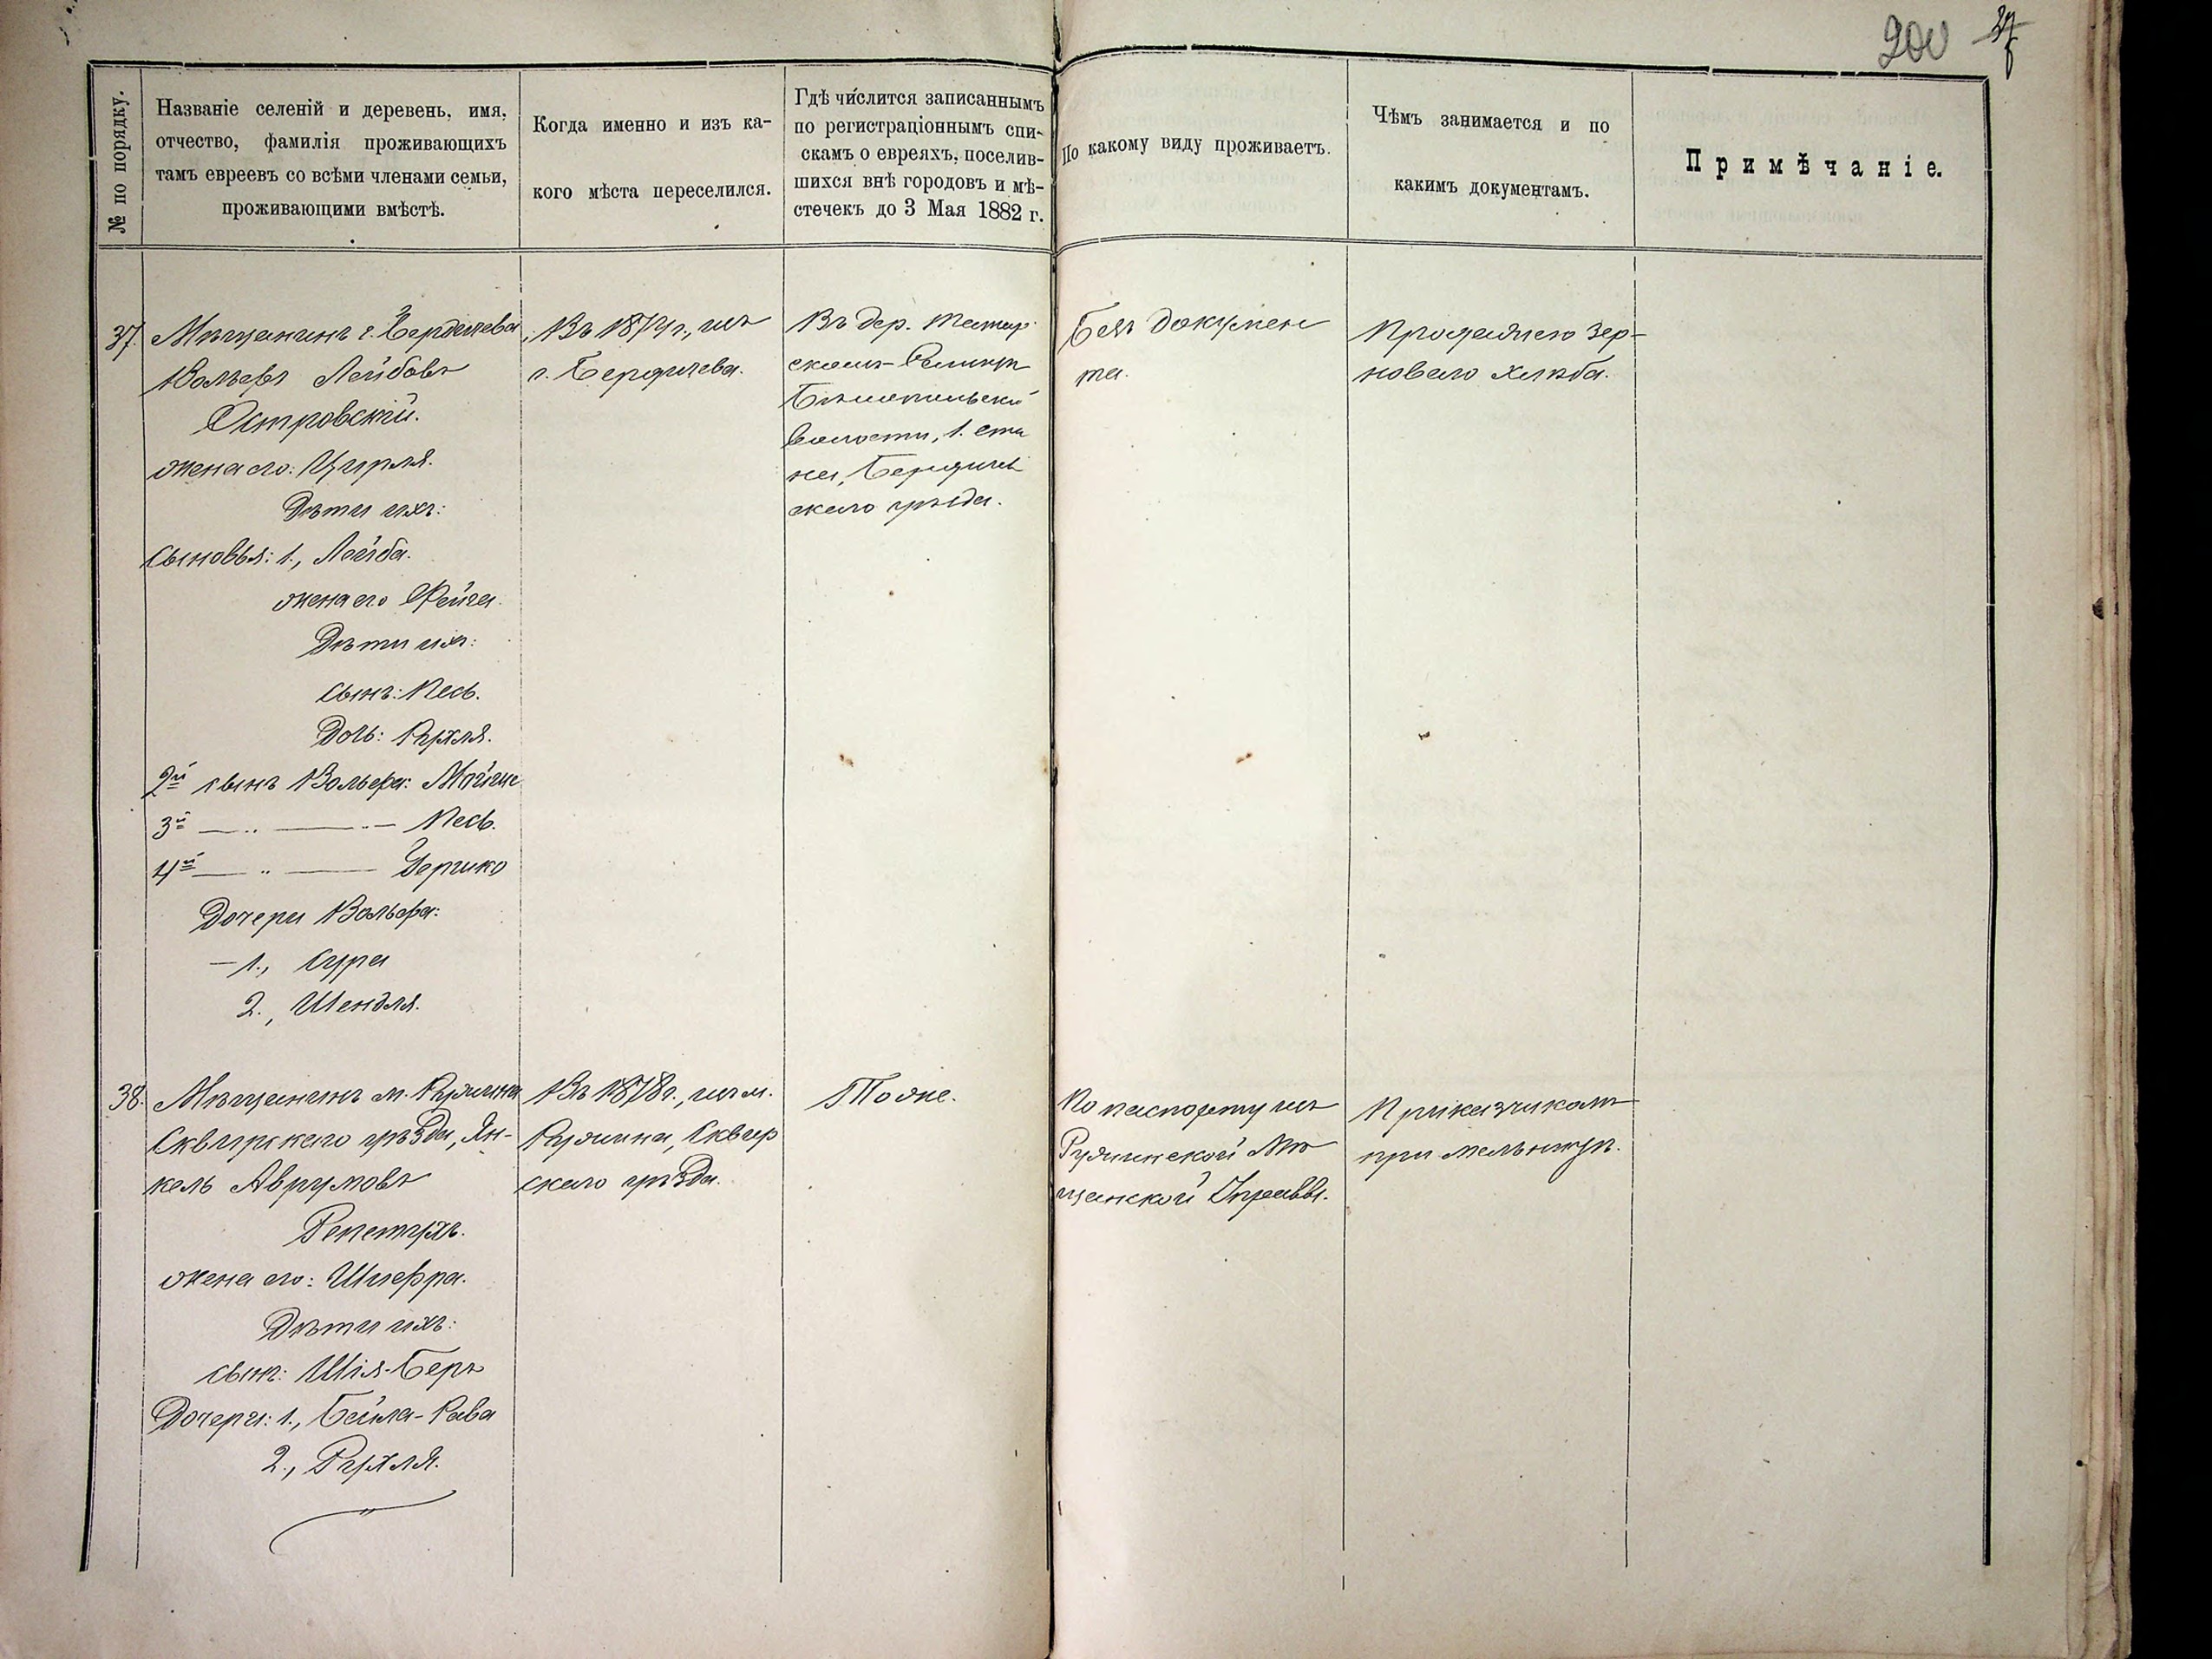 200 37
№ по порядку.
Названіе селеній и деревень, имя,
отчество, фамилія проживающихъ
тамъ евреевъ со всѣми членами семьи,
проживающими вмѣстѣ.
Когда именно и изъ ка-
кого мѣста переселился.
Гдѣ числится записаннымъ
по регистраціоннымъ спи-
скамъ о евреяхъ, поселив-
шихся внѣ городовъ и мѣ-
стечекъ до 3 Мая 1882 г.
По какому виду проживаетъ.
Чѣмъ занимается и по
какимъ документамъ.
Примѣчаніе.
37. Мѣщанинъ г. Бердичева
Вольфъ Лейбовъ
Островскій.
жена его: Цирля.
Дѣти ихъ:
сыновья: 1., Лейба.
жена его Фейга.
Дѣти ихъ:
сынъ: Песь.
Дочь: Рухля.
2й сынъ Вольфа: Мойше
3й —„— Песь.
4й —„— Гершко
Дочери Вольфа:
1., Сура
2., Шендля.
Въ 1874 г., изъ
г. Бердичева.
Въ дер. Татар
Бѣлопольской
волости, 1. ста
на, Бердичев
скаго уѣзда.
Безъ докумен
та.
Продажею зер-
новаго хлѣба.
38. Мѣщанинъ м. Ружина
Сквирскаго уѣзда, Ян-
кель Аврумовъ
Репетухъ.
жена его: Шифра.
Дѣти ихъ:
сынъ: Шія-Беръ
Дочери: 1., Бейла-Рава
2., Рухля.
Въ 1878 г., изъ м.
Ружина, Сквир
скаго уѣзда.
Тоже.
По паспорту изъ
Ружинской Мѣ
щанской Управы.
Приказчикомъ
при мельницѣ.